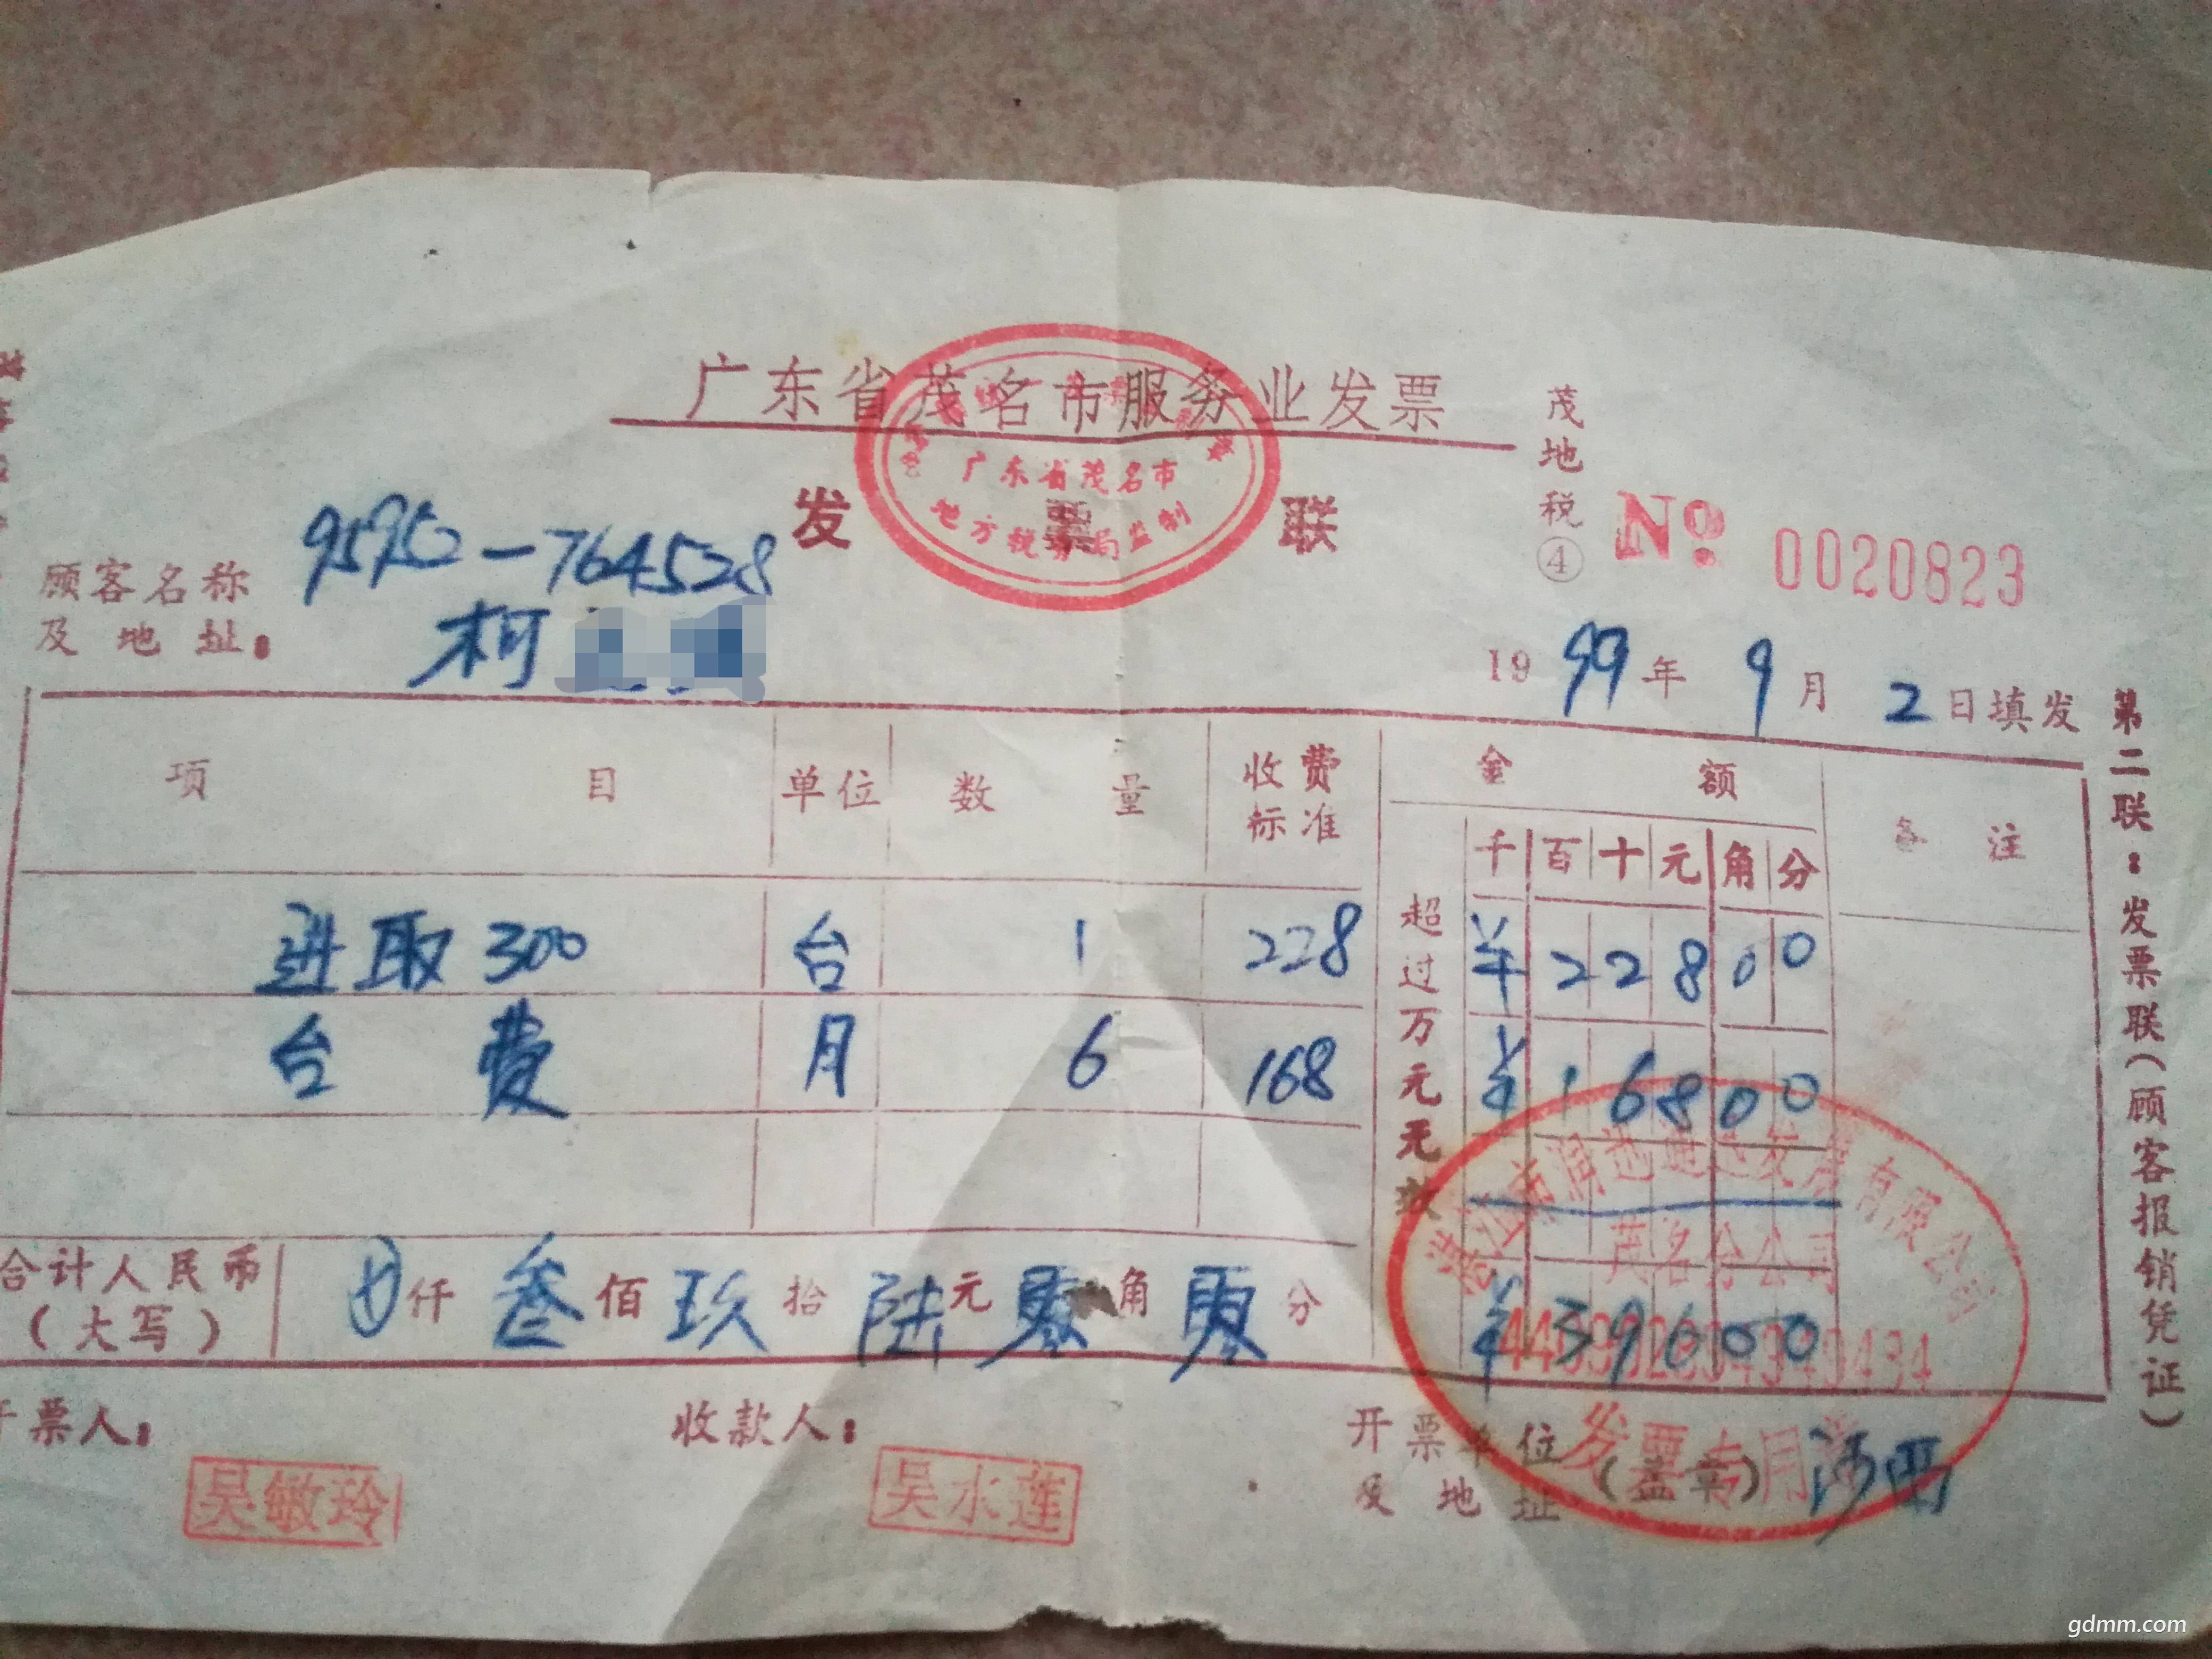 广东省茂名市服务业发票
发票联
广东省茂名市
地方税务局监制
茂地税④
№ 0020823
顾客名称
及地址：
95950-764528
柯
1999年9月2日填发
项目 单位 数量 收费标准 金额 备注
千 百 十 元 角 分
进取300 台 1 228 ¥ 2 2 8 0 0
台费 月 6 168 ¥ 1 6 8 0 0
超过万元无效
合计人民币（大写） 仟 叁 佰 玖 拾 陆 元 零 角 零 分 ¥ 3 9 6 0 0
茂名分公司
发票专用
票人： 收款人： 开票单位及地址（盖章）
吴敏玲 吴水莲
第二联：发票联（顾客报销凭证）
gdmm.com